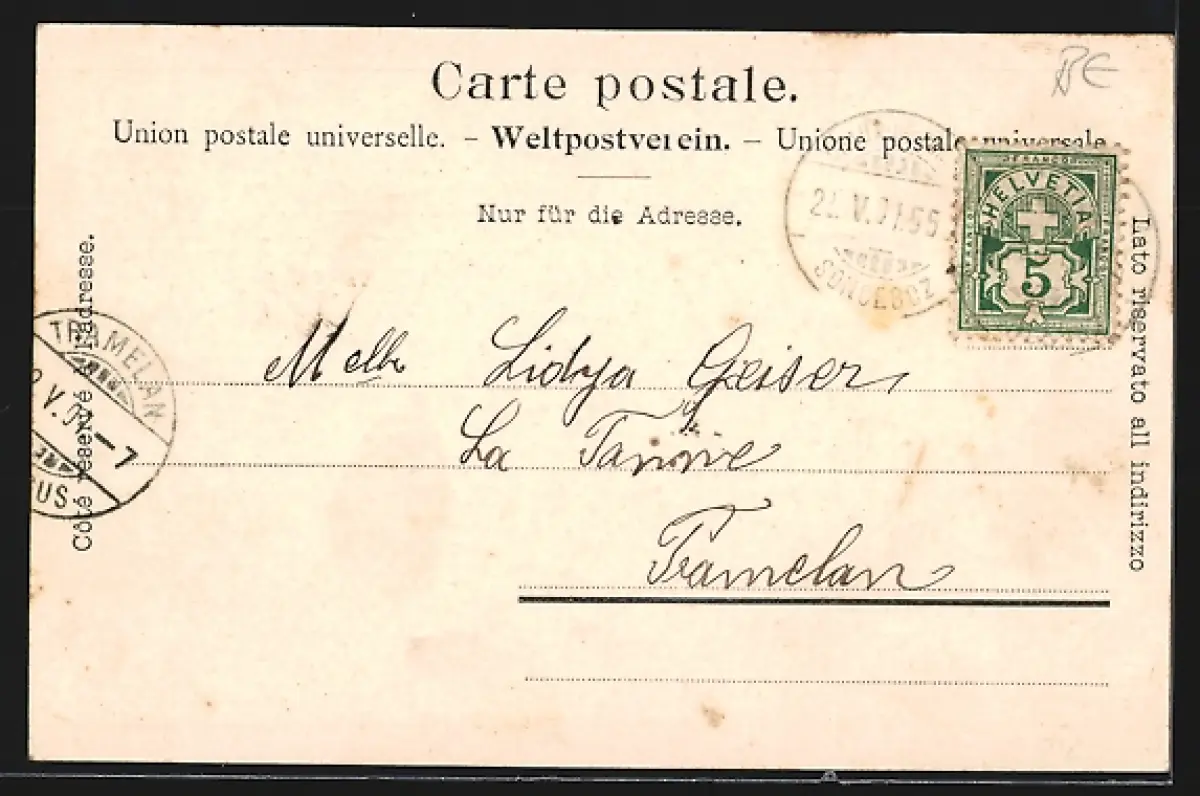 Carte postale.
Union postale universelle. – Weltpostverein. – Unione postale universale
Nur für die Adresse.
Côté réservé à l'adresse.
Lato riservato all indirizzo
FRANCO
HELVETIA
FRANCO
FRANCO
5
SONCEBOZ
TRAMELAN
Melle Lidya Geiser
La Tanne
Tramelan
BE